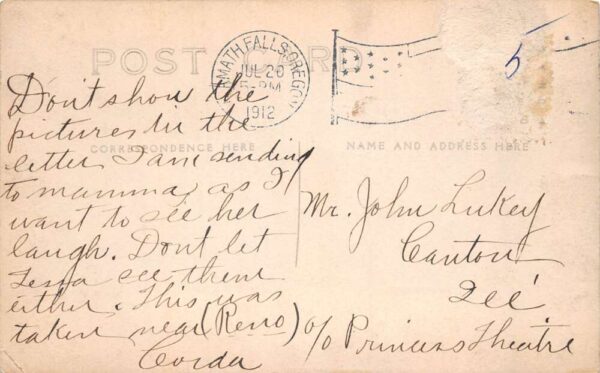 POST CARD
KLAMATH FALLS, OREGON
JUL 20
5 PM
1912
5
CORRESPONDENCE HERE
NAME AND ADDRESS HERE
Don't show the
pictures in the
letter I am sending
to mamma, as I
want to see her
laugh. Dont let
Tessa see them
either. This was
taken near (Reno)
Corda
Mr. John Lukey
Canton
Ill.
c/o Princess Theatre